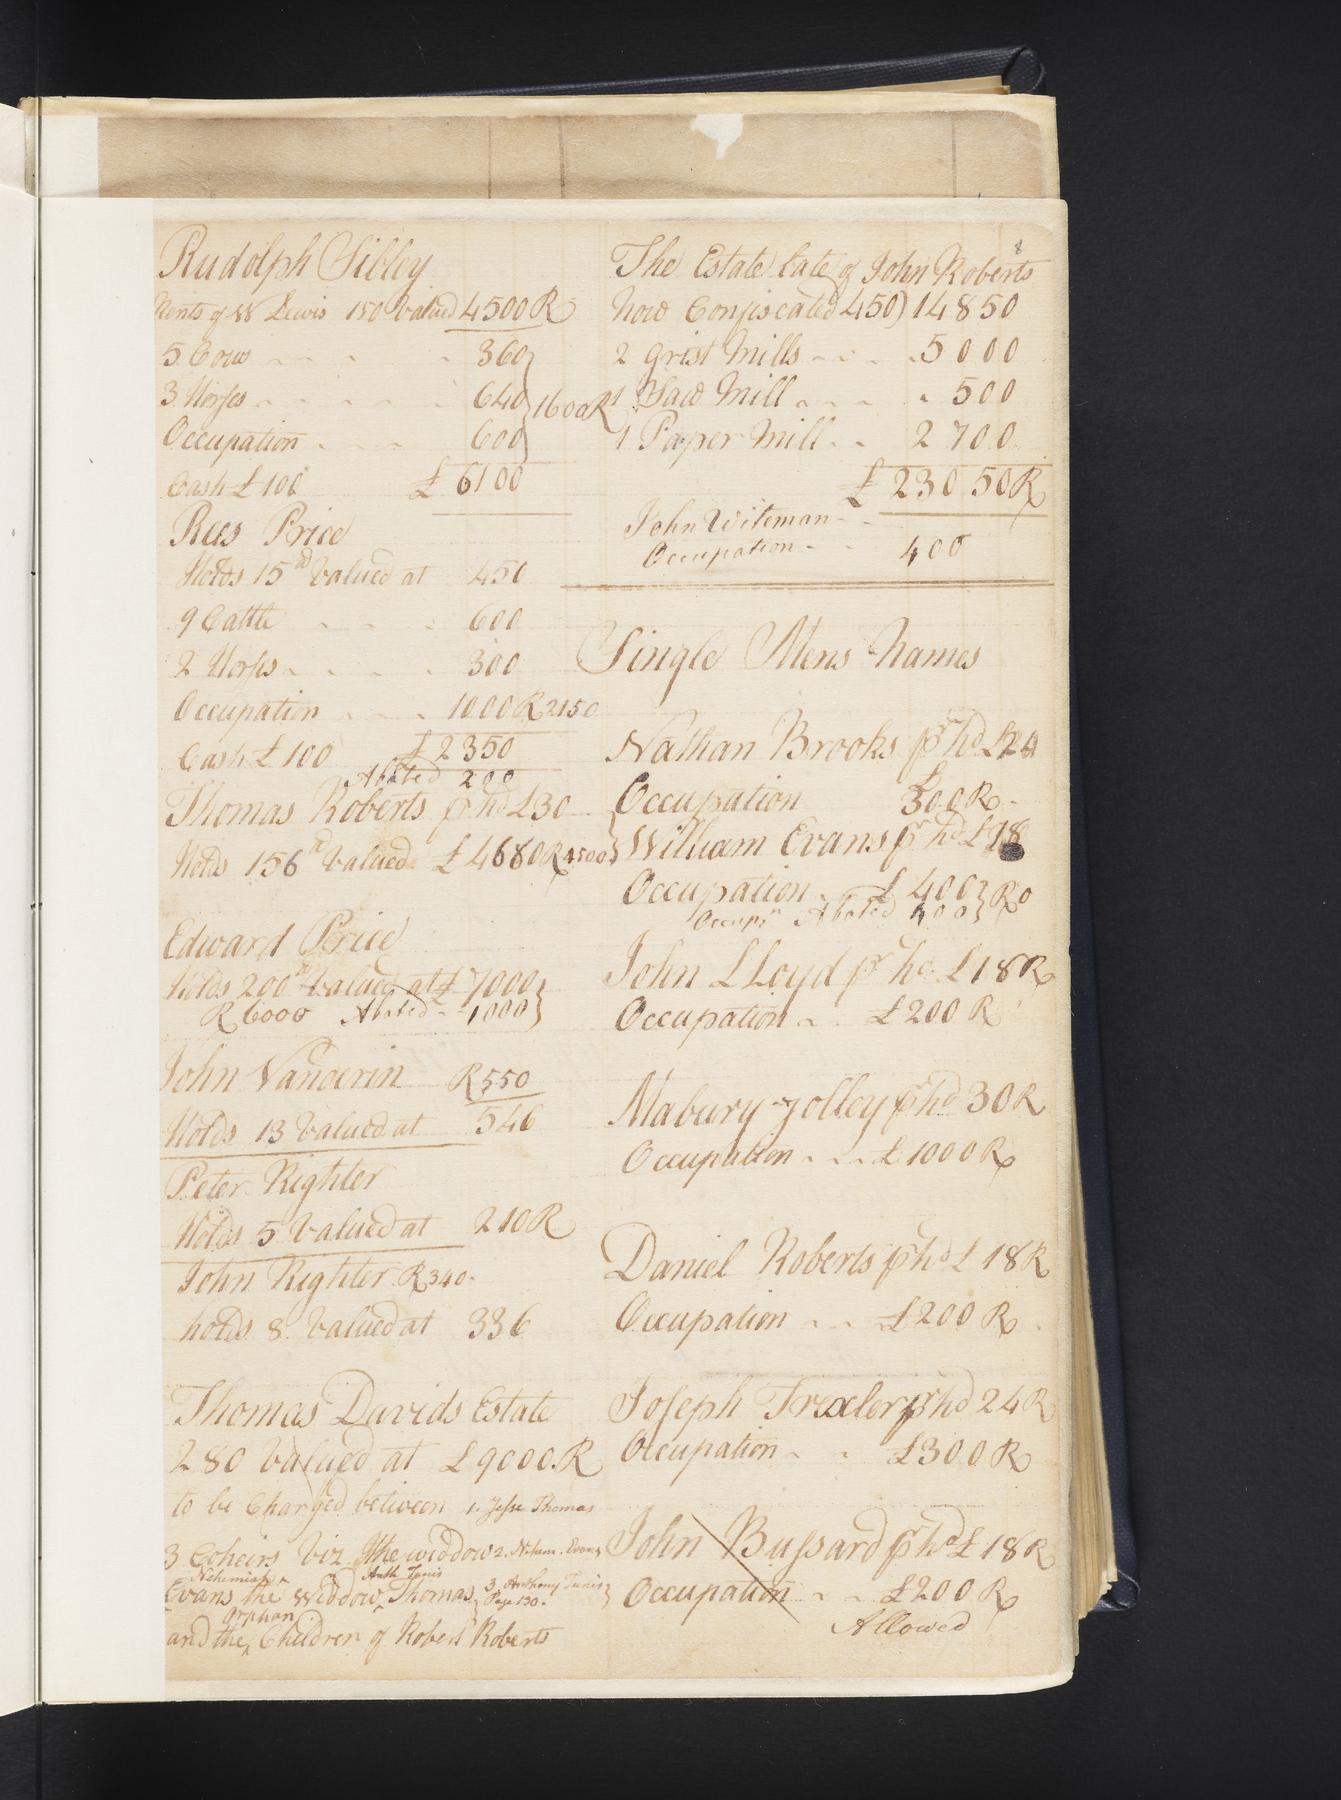 Rudolph Sibley
Rents of W Lewis 150 Valued 4500 R
5 Cows 360
3 Horses 640 } 1600 R
Occupation 600
Cash £ 100 £ 6100
Rees Price
Holds 15 Valued at 450
9 Cattle 600
2 Horses 300
Occupation 1000 R 2150
Cash £ 100 £ 2350
Abated 200
Thomas Roberts pr hd £30
Holds 156 Valued £ 4680 R 4500 }
Edward Price
Holds 200 Valued at £ 7000 }
R 6000 Abated 1000 }
John Vanderin R 550
Holds 13 Valued at 546
Peter Righter
Holds 5 Valued at 210 R
John Righter R 340
holds 8 Valued at 336
Thomas Davids Estate
280 Valued at £ 9000 R
to be Charged between 1. Jesse Thomas
3 Coheirs Viz the widdow 2. Nehem. Evans
Nehemiah Anth Tunis
Evans the Widdow Thomas 3. Anthony Tunis }
Page 130.
orphan
and the Children of Robert Roberts
8
The Estate late of John Roberts
now Confiscated 450) 14850
2 Grist Mills 5000
1 Saw Mill 500
1 Paper Mill 2700
£ 23050 R
John Witeman
Occupation 400
Single Mens Names
Nathan Brooks pr hd £24
Occupation £ 300 R
William Evans pr hd £18
Occupation £ 400 } R 0
Occupn Abated 400 }
John LLoyd pr hd £18 R
Occupation £ 200 R
Mabury Jolley pr hd 30 R
Occupation £ 1000 R
Daniel Roberts pr hd £ 18 R
Occupation £ 200 R
Joseph Trexler pr hd 24 R
Occupation £300 R
John Bussard pr hd £ 18 R
Occupation £200 R
Allowed